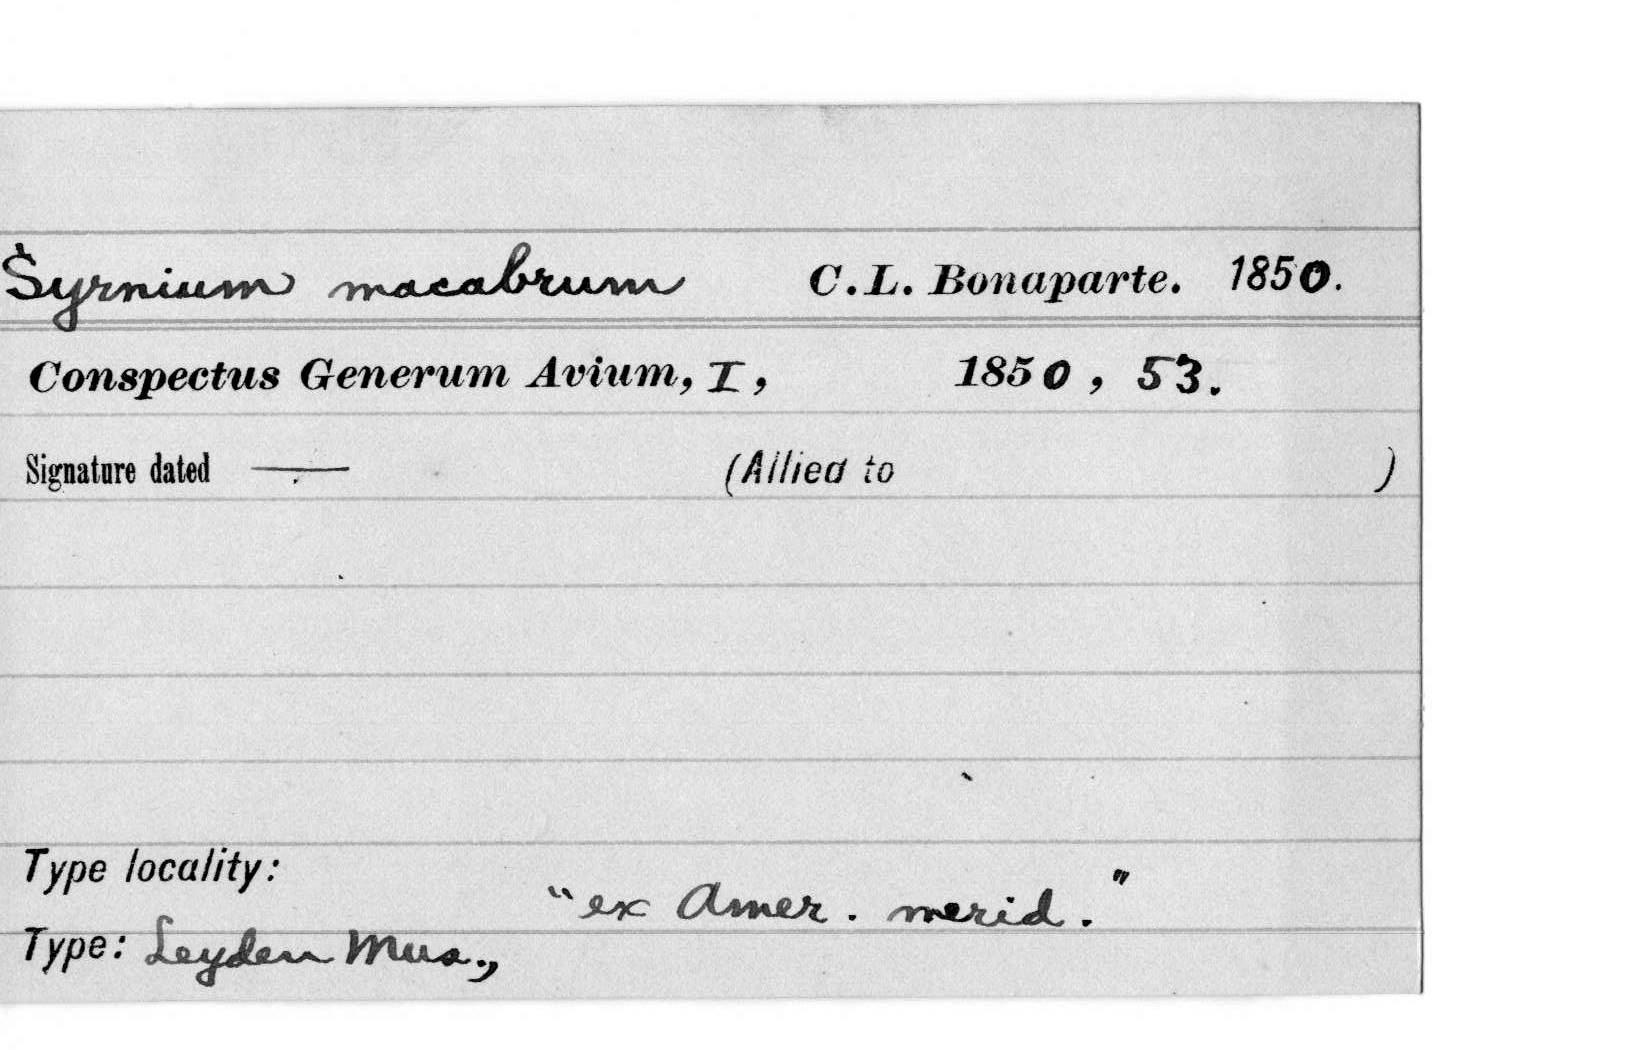 Syrnium macabrum C.L. Bonaparte. 1850.
Conspectus Generum Avium, I, 1850, 53.
Signature dated — (Allied to )
Type locality:
"ex Amer. merid."
Type: Leyden Mus.,